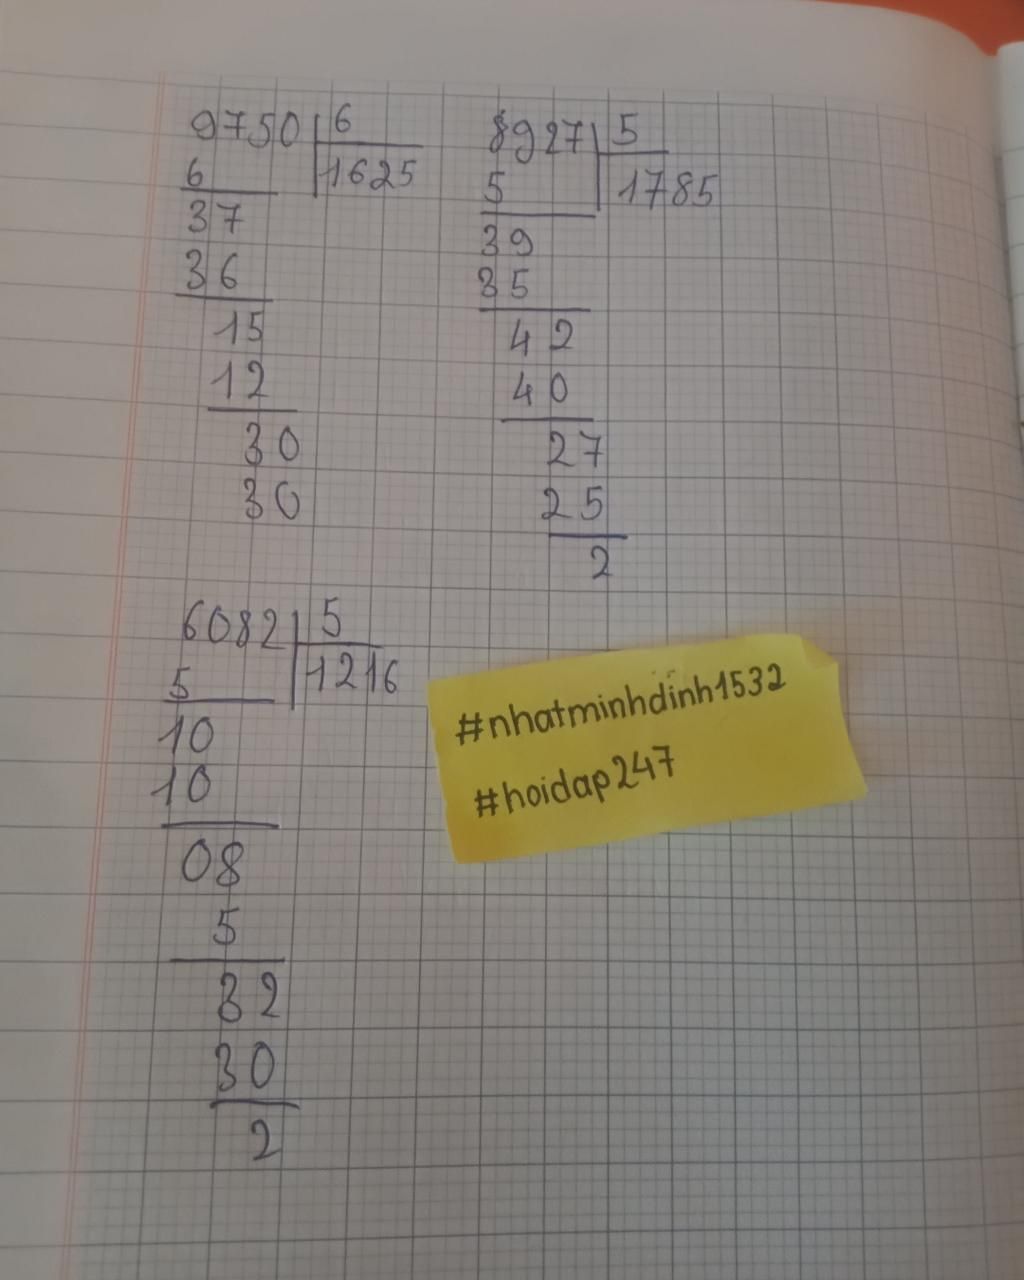 9750 6
6 1625
37
36
15
12
30
30
8927 5
5 1785
39
35
42
40
27
25
2
6082 5
5 1216
10
10
08
5
32
30
2
#nhatminhdinh1532
#hoidap247